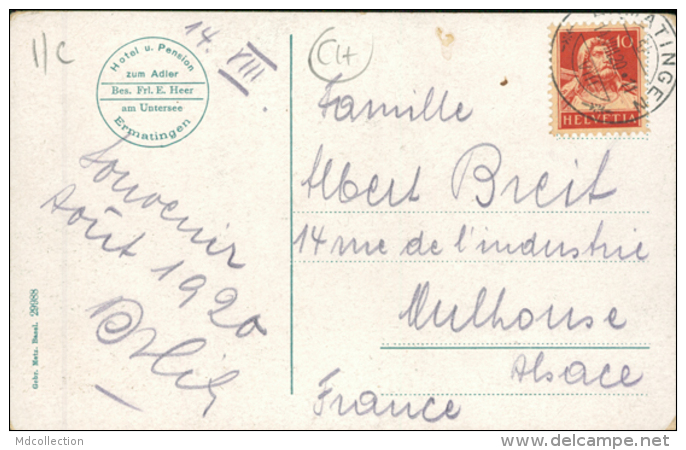 11c
14. VIII
CH
Hotel u. Pension
zum Adler
Bes. Frl. E. Heer
am Untersee
Ermatingen
10
HELVETIA
ERMATINGEN
Souvenir
Août 1920
Famille
Albert Breit
14 rue de l'industrie
Mulhouse
Alsace
France
Gebr. Metz, Basel. 29988
Mdcollection
www.delcampe.net